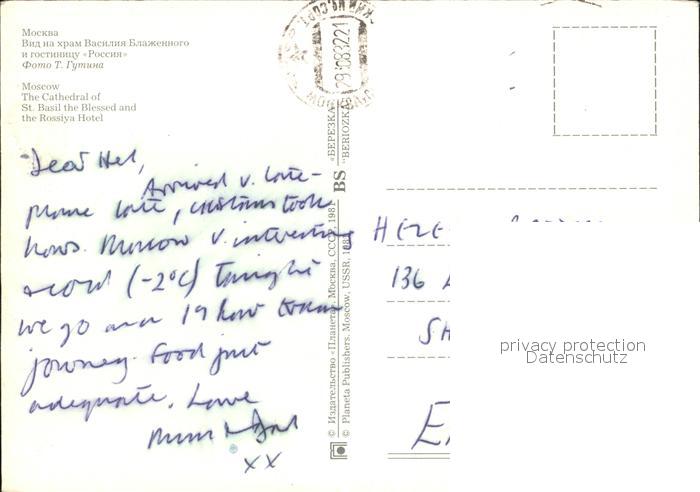 Москва
Вид на храм Василия Блаженного
и гостиницу «Россия»
Фото Т. Гутина
Moscow
The Cathedral of
St. Basil the Blessed and
the Rossiya Hotel
Dear Hel,
Arrived v. late -
plane late, customs took
hours. Moscow v. interesting
& cold (-2°C) Tonight
we go on a 19 hour train
journey. Food just
adequate. Love
Mum & Dad
XX
«БЕРЕЗКА»
"BERIOZKA"
BS
© Издательство «Планета», Москва, СССР, 198
© Planeta Publishers, Moscow, USSR, 198
HELE
136
SH
E
privacy protection
Datenschutz